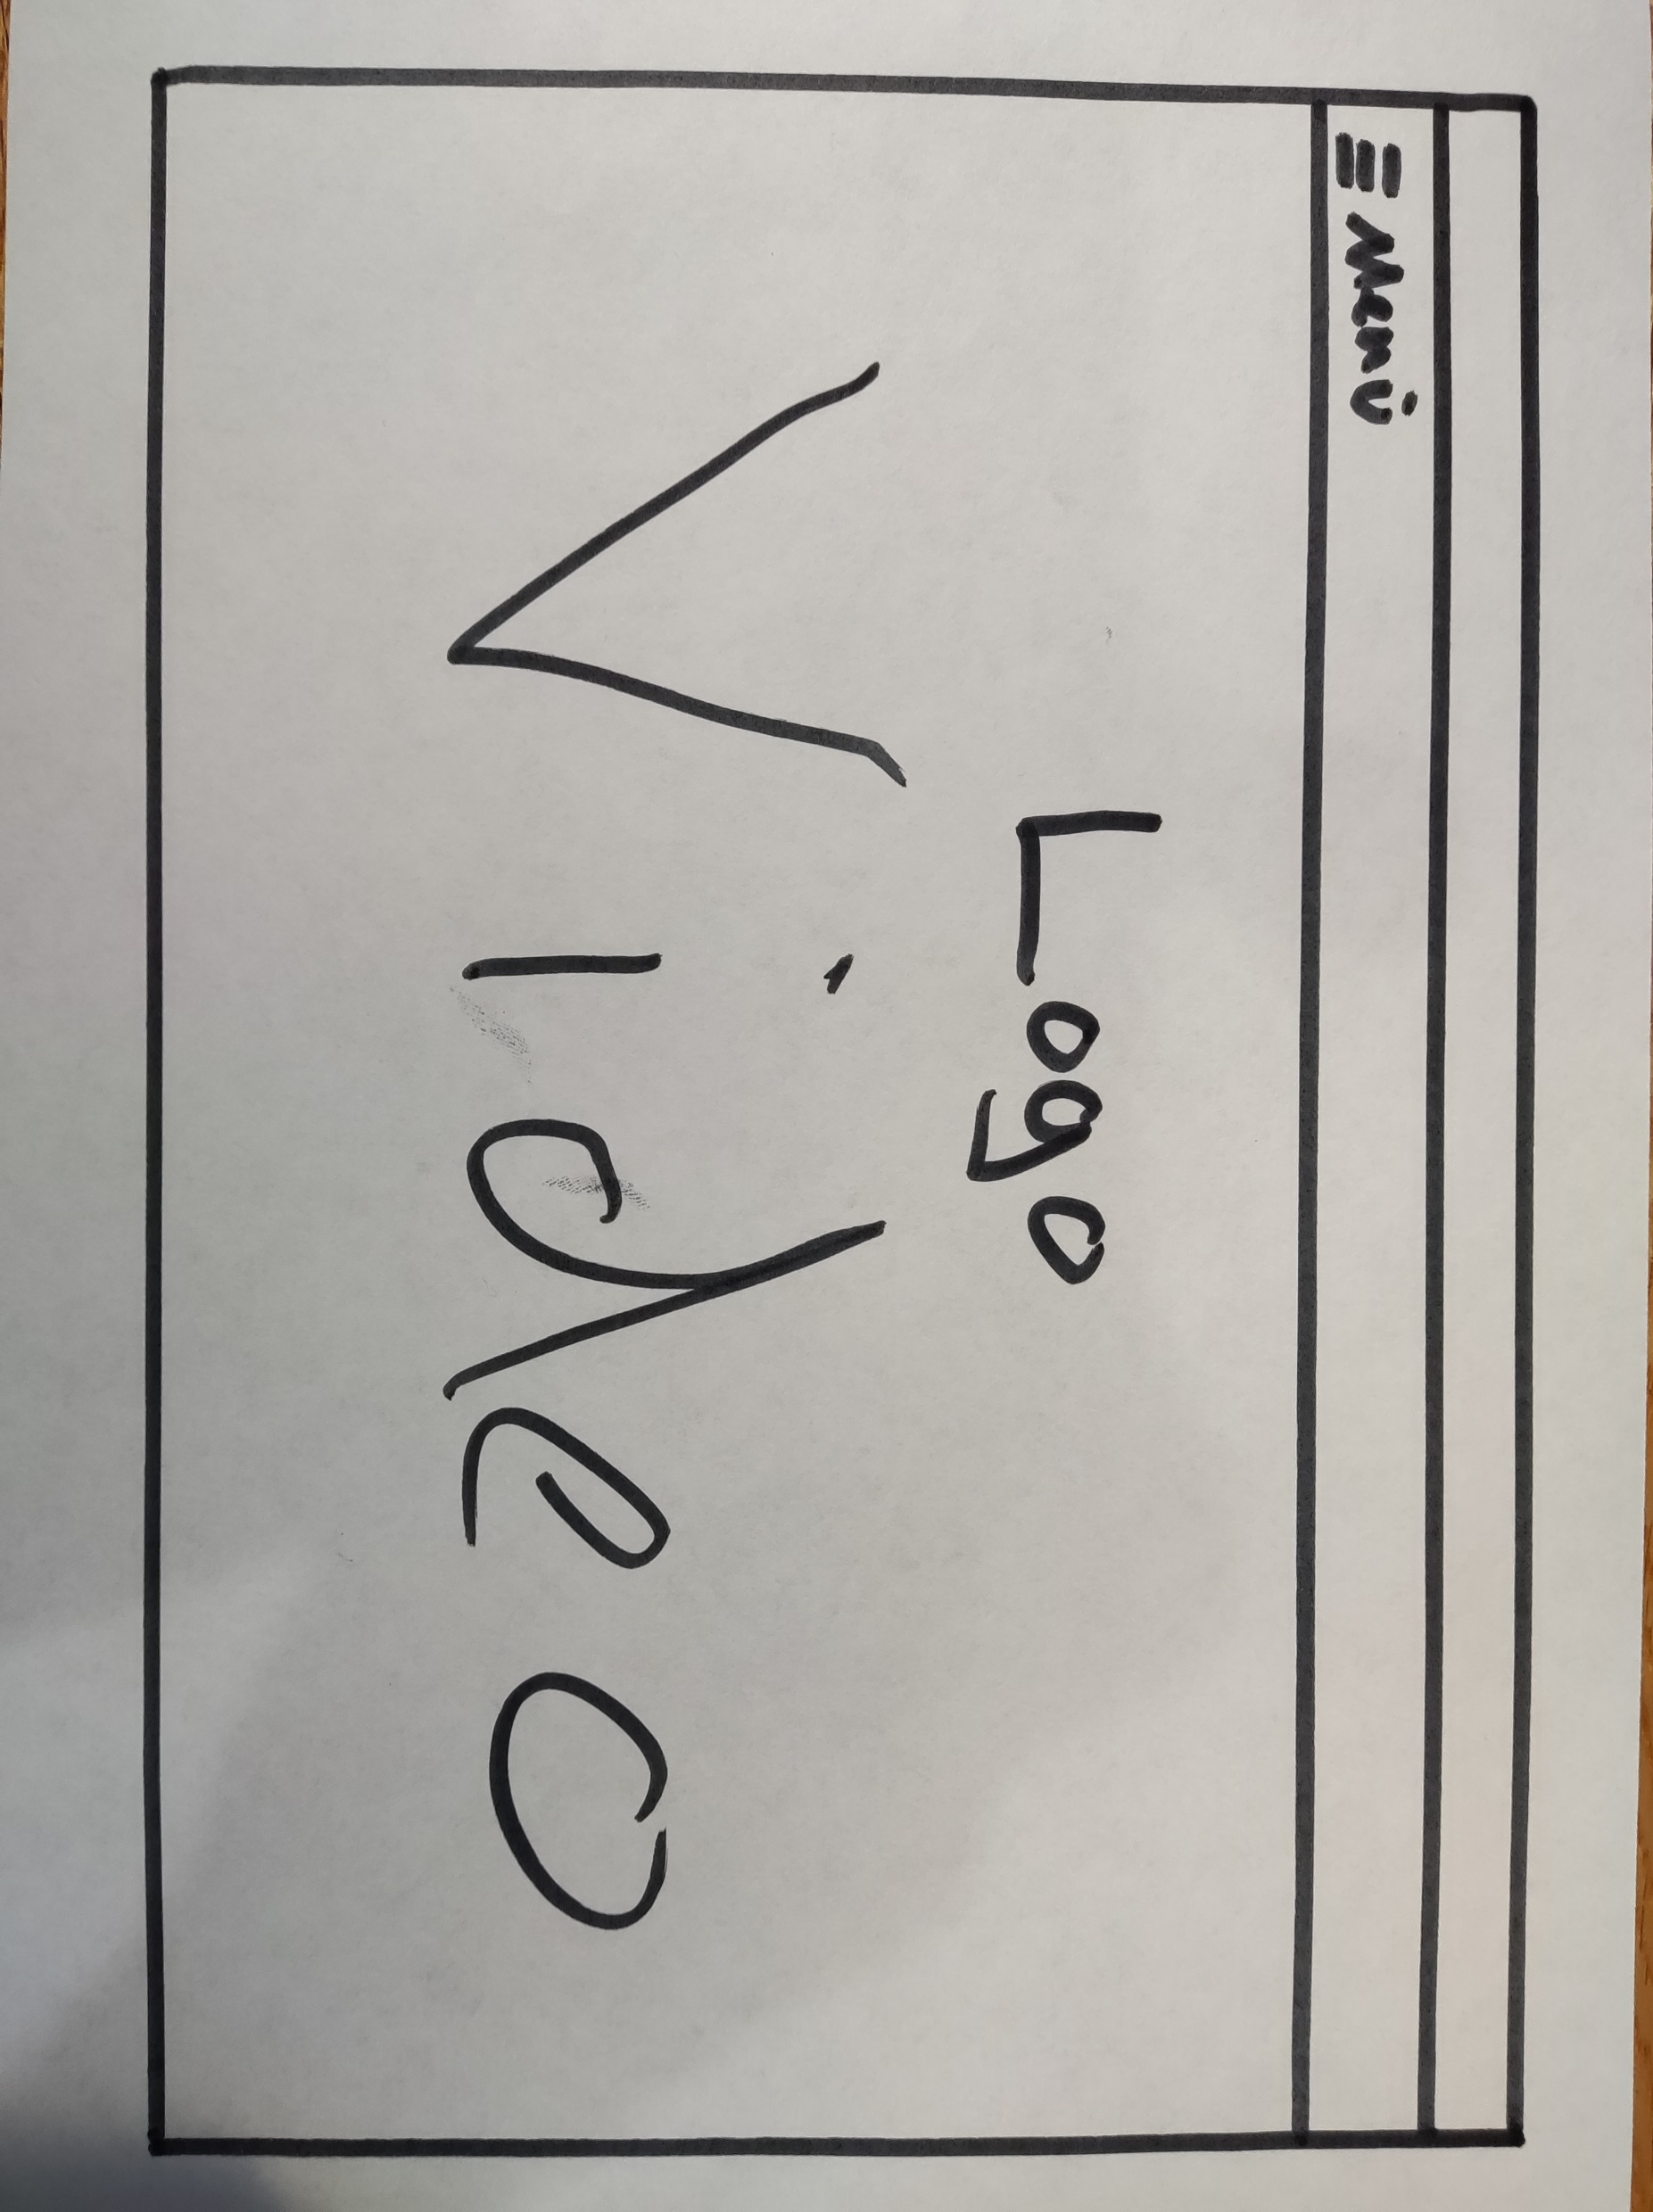 Menú
Logo
Video